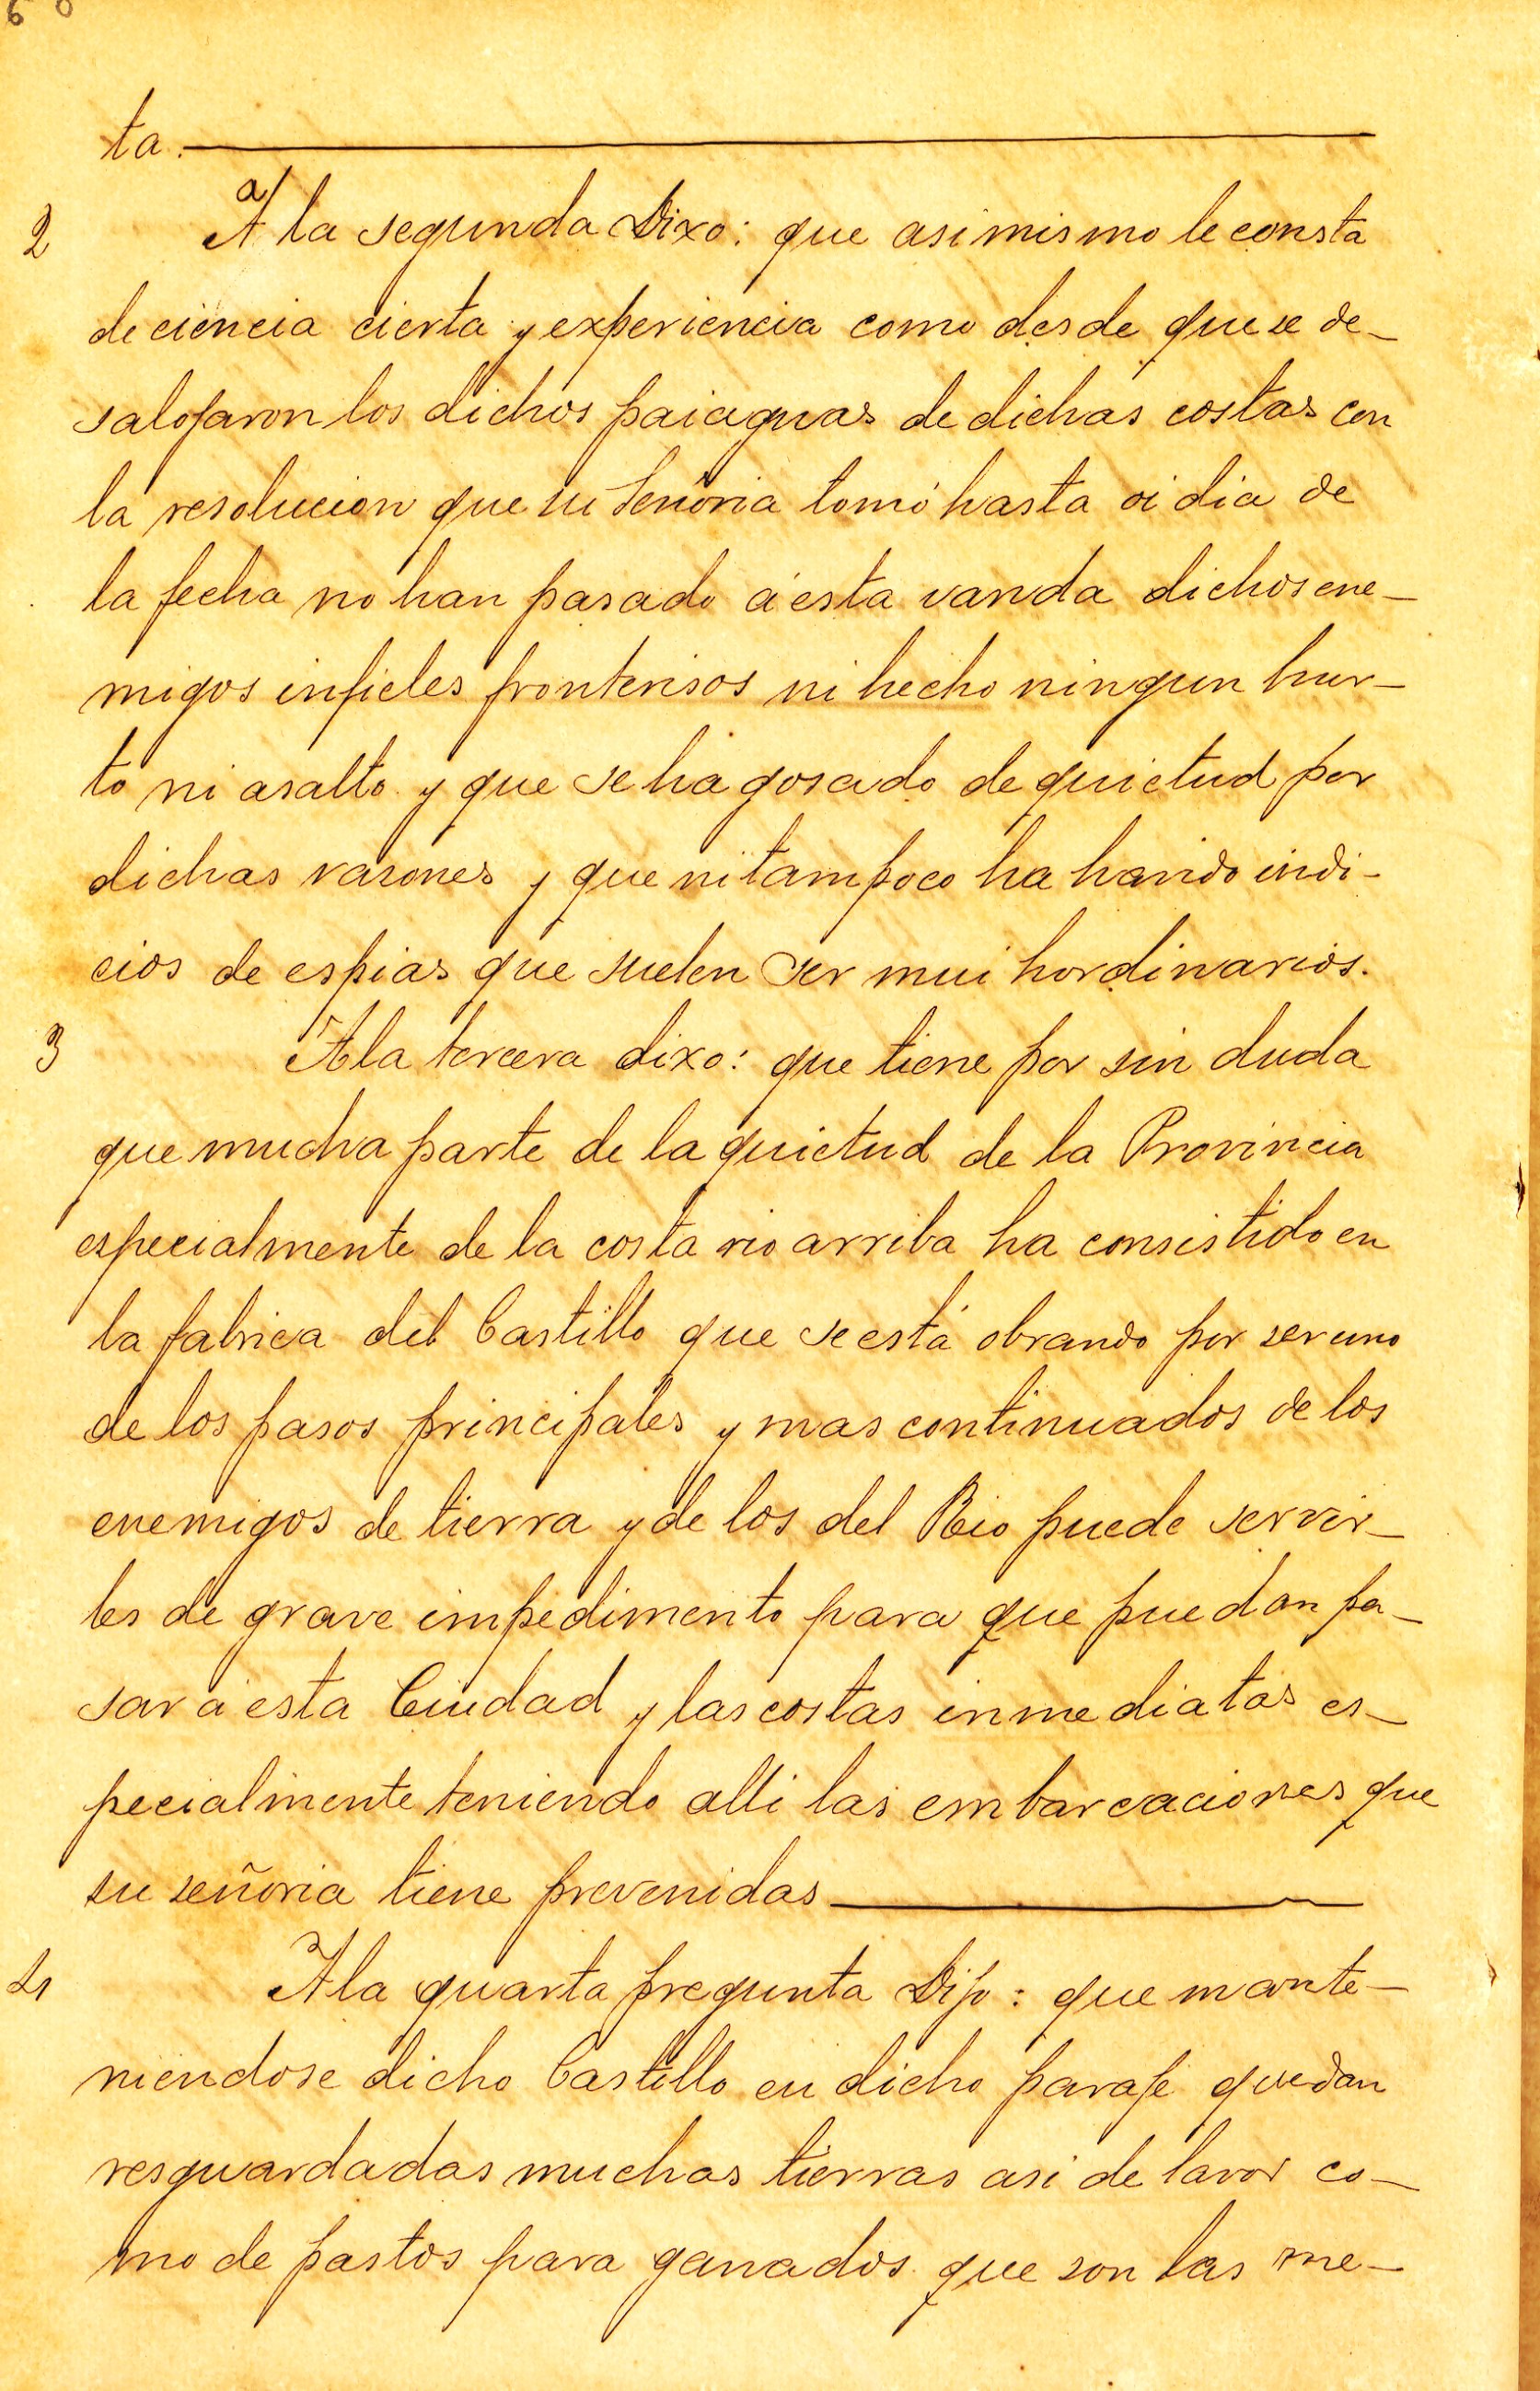 ta.
2 A la segunda Dixo: que asimismo le consta
de ciencia cierta y experiencia como desde que se de-
salojaron los dichos paiaguas de dichas costas con
la resolucion que su Señoria tomó hasta oi dia de
la fecha no han pasado á esta vanda dichos ene-
migos infieles fronterisos ni hecho ningun hur-
to ni asalto y que se ha gosado de quietud por
dichas rasones y que ni tampoco ha havido indi-
cios de espias que suelen ser mui hordinarios.
3 A la tercera dixo: que tiene por sin duda
que mucha parte de la quietud de la Provincia
especialmente de la costa rio arriba ha consistido en
la fabrica del Castillo que se está obrando por ser uno
de los pasos principales y mas continuados de los
enemigos de tierra y de los del Rio puede servir-
les de grave impedimento para que puedan pa-
sar á esta Ciudad y las costas inmediatas es-
pecialmente teniendo alli las embarcaciones que
su señoria tiene prevenidas
4 A la quarta pregunta Dijo: que mante-
niendose dicho Castillo en dicho paraje quedan
resguardadas muchas tierras asi de lavor co-
mo de pastos para ganados que son las me-